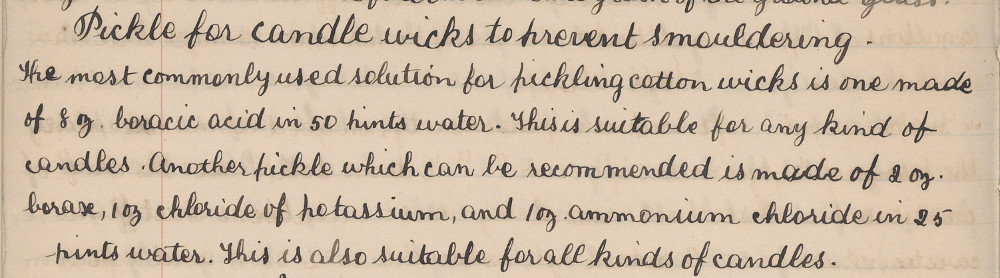 Pickle for candle wicks to prevent smouldering.
The most commonly used solution for pickling cotton wicks is one made
of 8 oz. boracic acid in 50 pints water. This is suitable for any kind of
candles. Another pickle which can be recommended is made of 2 oz.
borax, 1 oz chloride of potassium, and 1 oz. ammonium chloride in 25
pints water. This is also suitable for all kinds of candles.